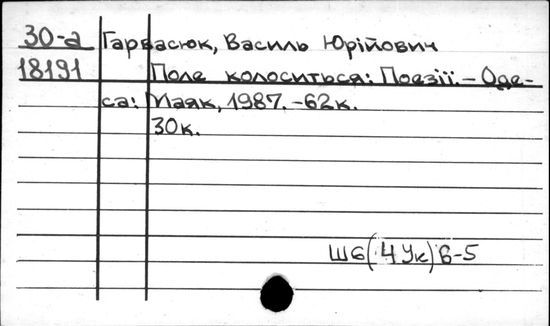 30-а Гарвасюк, Василь Юрійович
18191 Поле колоситься: Поезії. – Оде-
са: Маяк, 1987. – 62 к.
30к.
Ш6(4Ук)6-5